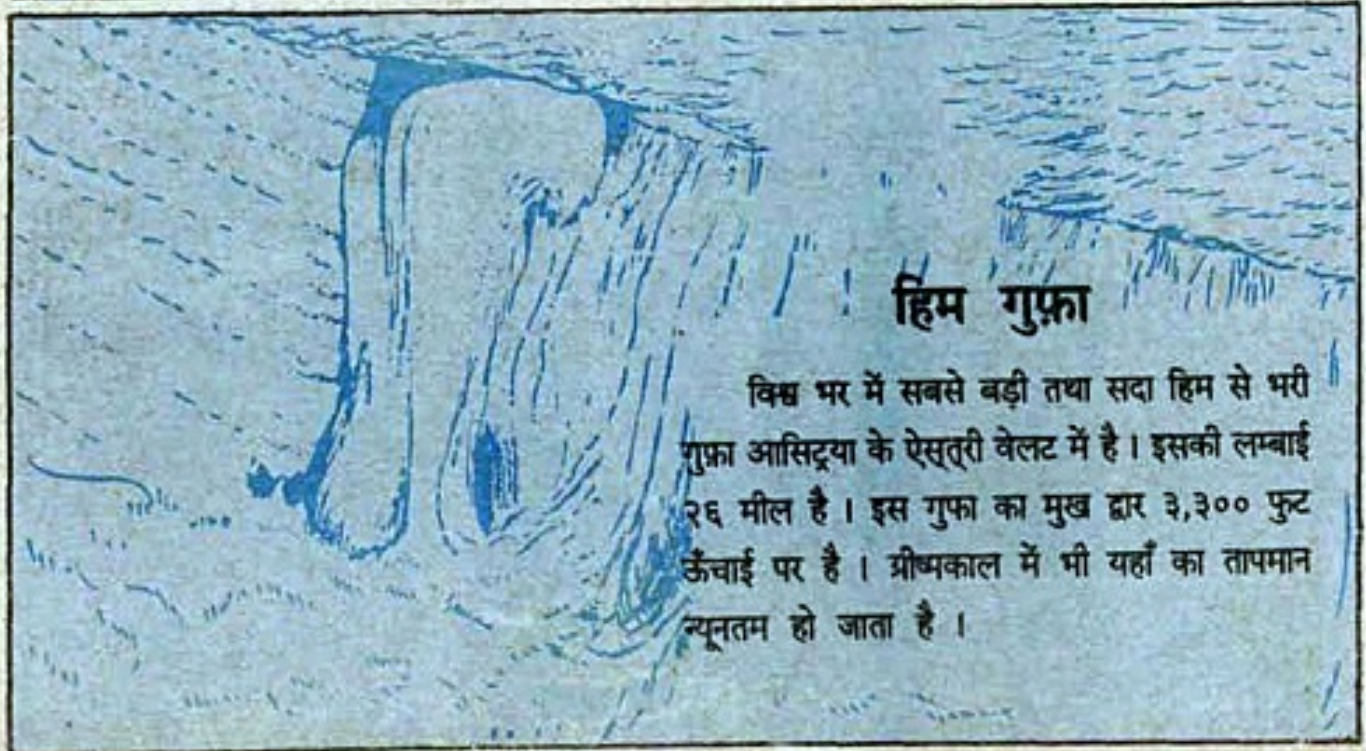 हिम गुफ़ा
विश्व भर में सबसे बड़ी तथा सदा हिम से भरी
गुफ़ा आसिट्रया के ऐस्त्री वेलट में है । इसकी लम्बाई
२६ मील है । इस गुफा का मुख द्वार ३,३०० फुट
ऊँचाई पर है । ग्रीष्मकाल में भी यहाँ का तापमान
न्यूनतम हो जाता है ।